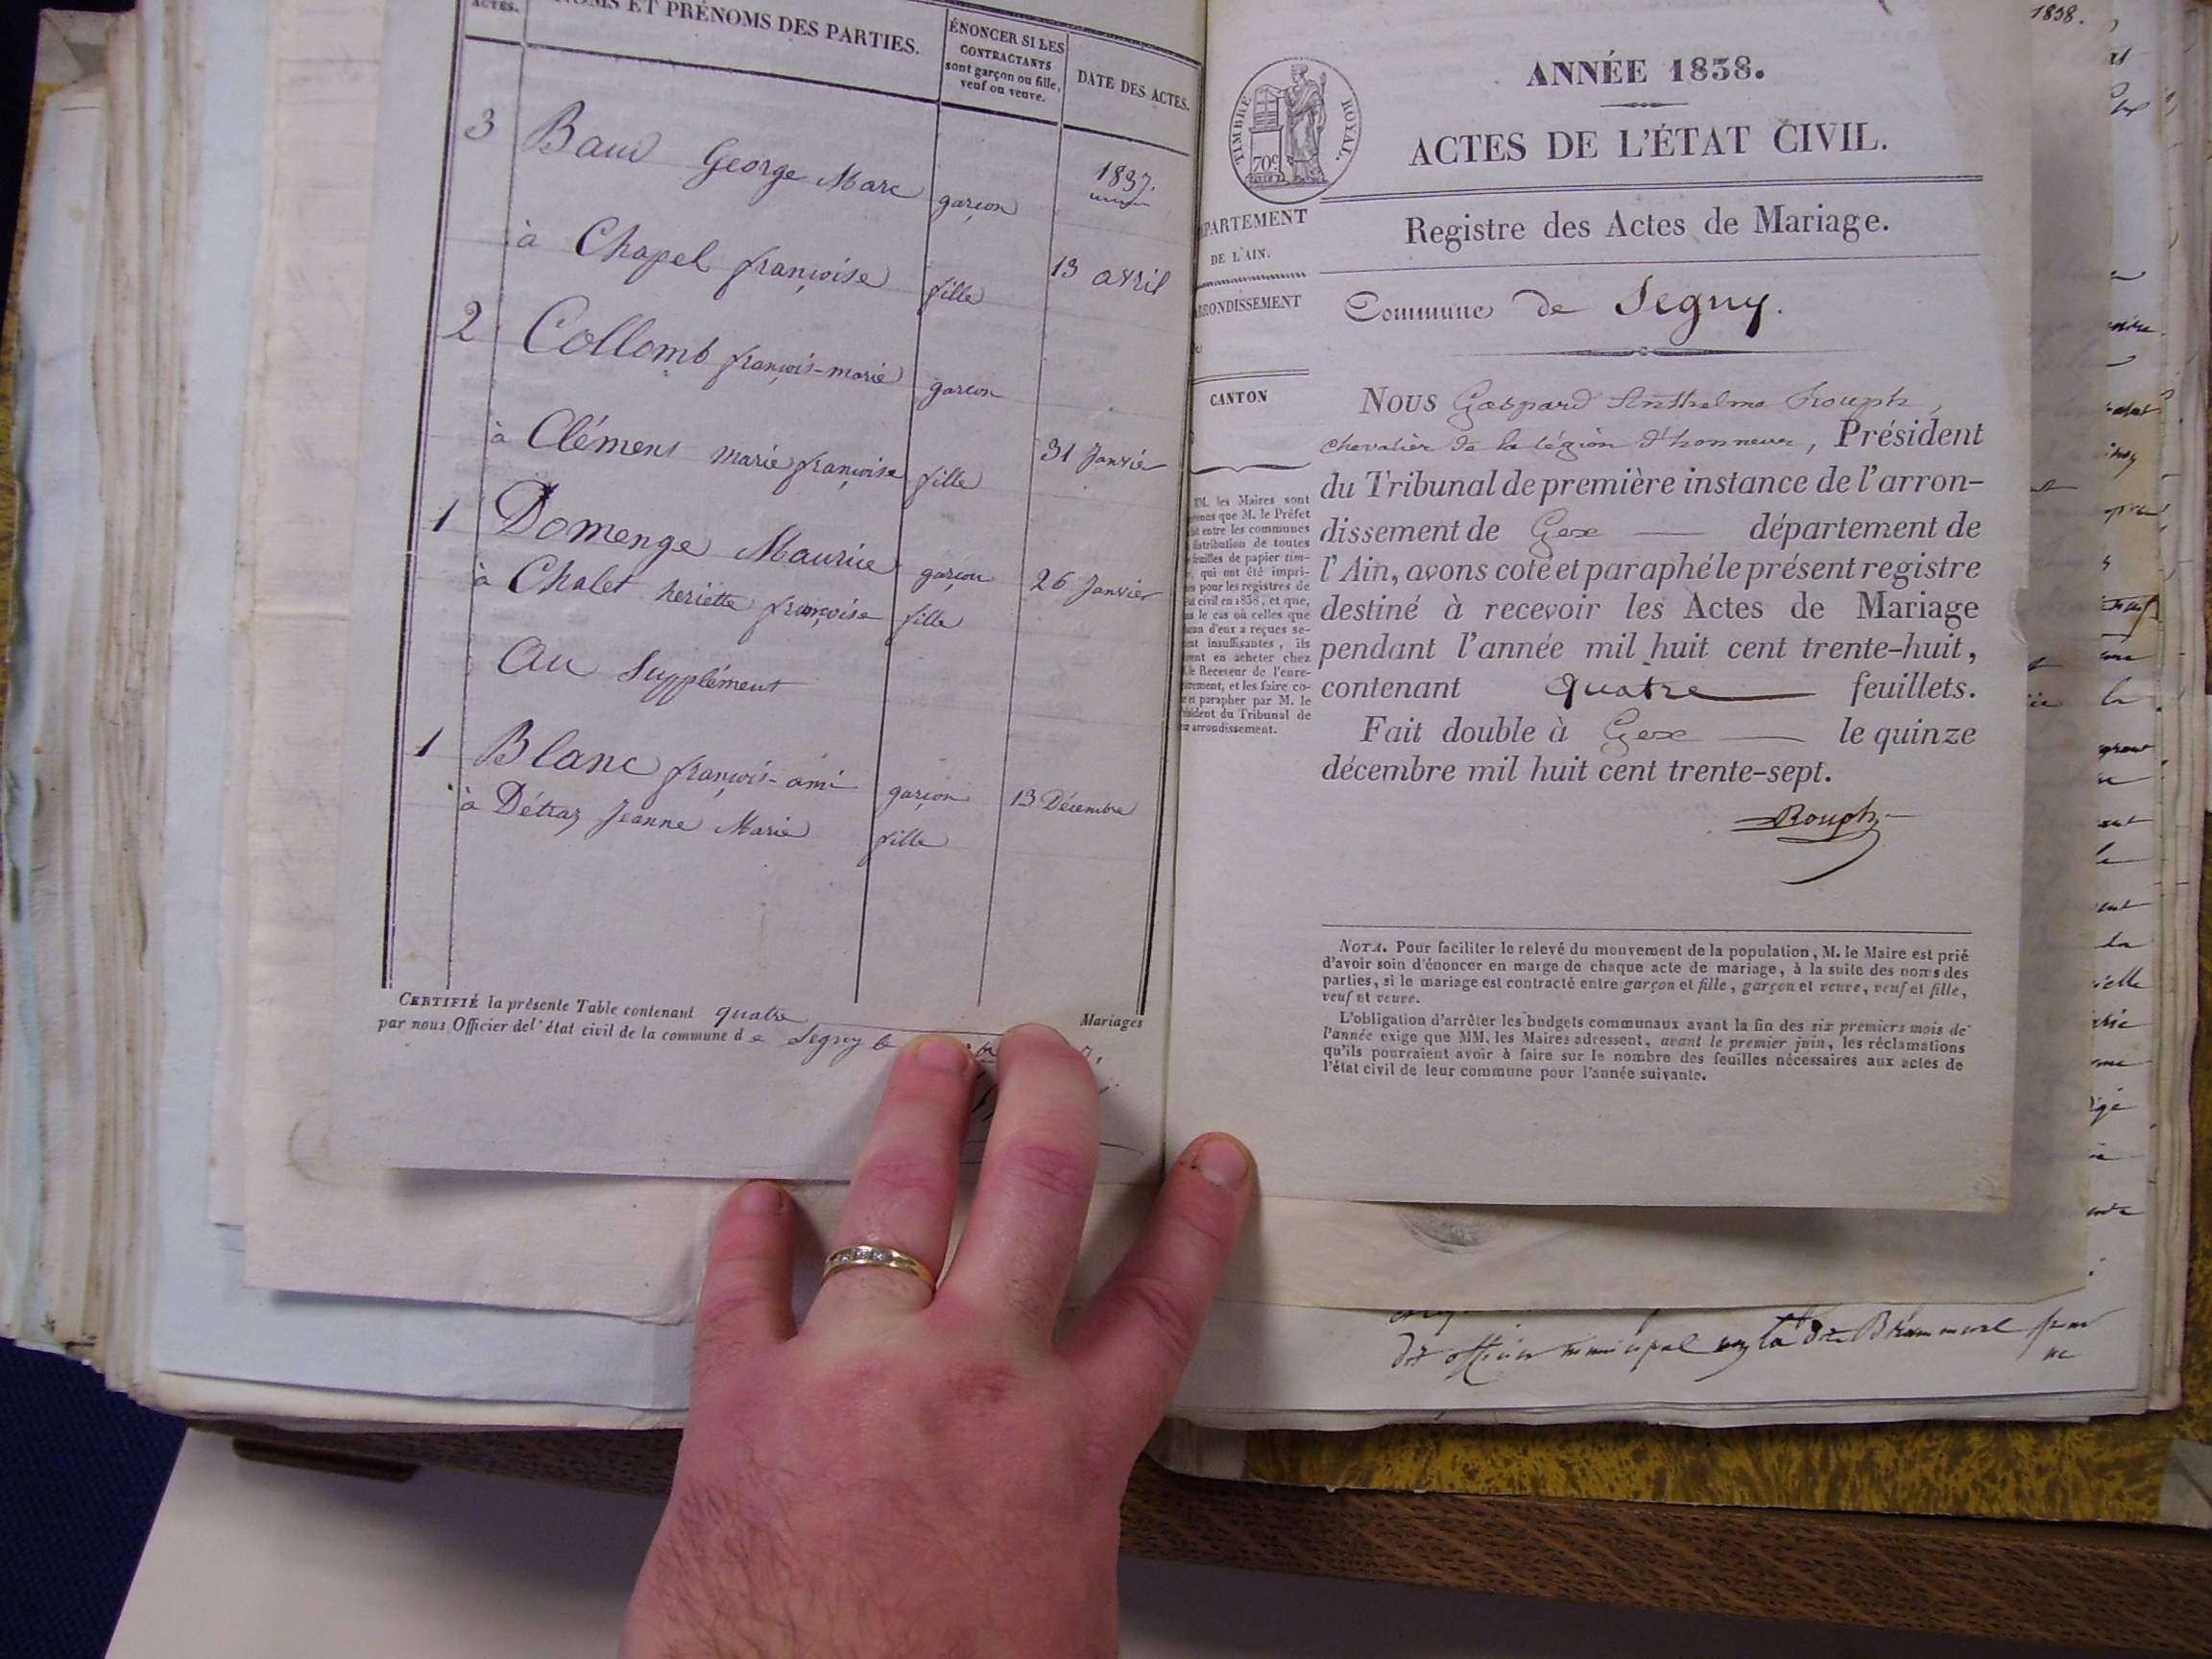 ACTES.
NOMS ET PRÉNOMS DES PARTIES.
ÉNONCER SI LES
CONTRACTANTS
sont garçon ou fille,
veuf ou veuve.
DATE DES ACTES.
1837.
3 Baud George Marc garçon
à Chapel françoise fille 13 avril
2 Collomb françois-marie garçon
à Clément marie françoise fille 31 Janvier
1 Domenge Maurice garçon 26 Janvier
à Chalet heriette françoise fille
Au Supplément
1 Blanc françois-ami garçon 13 Décembre
à Détraz Jeanne Marie fille
CERTIFIÉ la présente Table contenant quatre Mariages
par nous Officier de l'état civil de la commune de Segny le
1838.
TIMBRE ROYAL.
70c
ANNÉE 1838.
ACTES DE L'ÉTAT CIVIL.
Registre des Actes de Mariage.
PARTEMENT
DE L'AIN.
RRONDISSEMENT
CANTON
MM. les Maires sont
que M. le Préfet
entre les communes
distribution de toutes
feuilles de papier tim-
qui ont été impri-
pour les registres de
civil en 1838, et que,
le cas où celles que
d'eux a reçues se-
insuffisantes, ils
en acheter chez
le Receveur de l'enre-
et les faire co-
et parapher par M. le
du Tribunal de
arrondissement.
Commune de Segny.
Nous Gaspard Anthelme Rouph,
chevalier de la légion d'honneur, Président
du Tribunal de première instance de l'arron-
dissement de Gex département de
l'Ain, avons coté et paraphé le présent registre
destiné à recevoir les Actes de Mariage
pendant l'année mil huit cent trente-huit,
contenant quatre feuillets.
Fait double à Gex le quinze
décembre mil huit cent trente-sept.
Rouph
NOTA. Pour faciliter le relevé du mouvement de la population, M. le Maire est prié
d'avoir soin d'énoncer en marge de chaque acte de mariage, à la suite des noms des
parties, si le mariage est contracté entre garçon et fille, garçon et veuve, veuf et fille,
veuf et veuve.
L'obligation d'arrêter les budgets communaux avant la fin des six premiers mois de
l'année exige que MM. les Maires adressent, avant le premier juin, les réclamations
qu'ils pourraient avoir à faire sur le nombre des feuilles nécessaires aux actes de
l'état civil de leur commune pour l'année suivante.
officier municipal